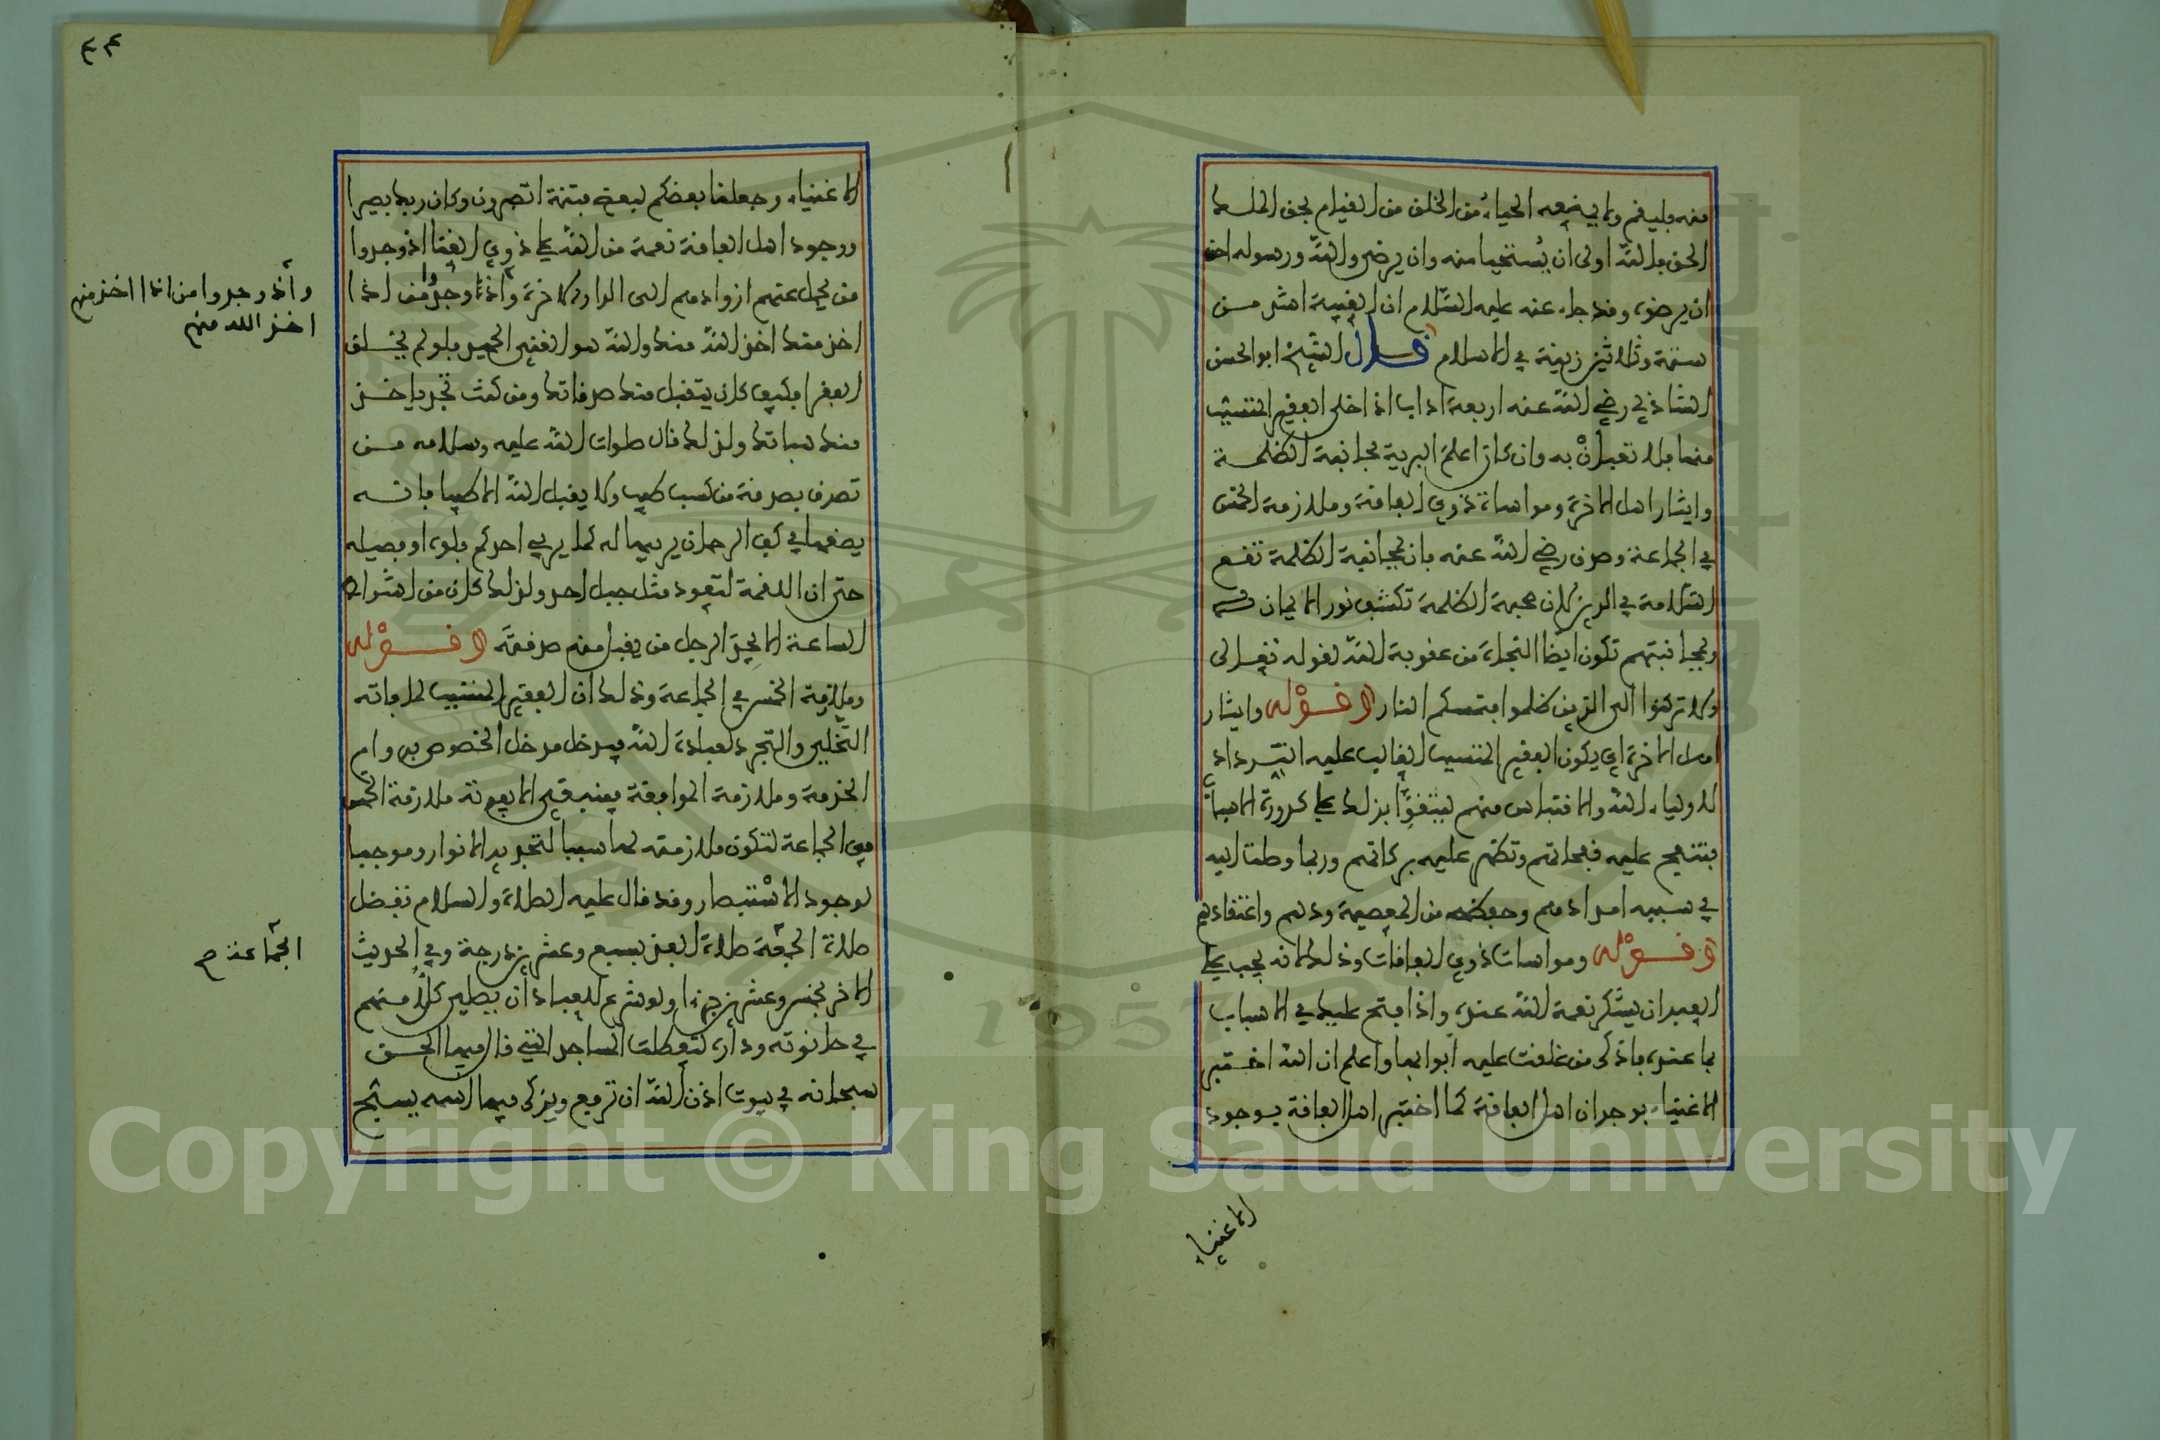 منه بليغم ولا يمنعه الحياء من الخلق من القيام بحق الملك
الحق بالله اولى ان يستحيا منه وان يرضى والله ورسوله احق
ان يرضوه وقد جاء عنه عليه السلام ان الغيبة اشد من
ستة وثلاثين زنية في الاسلام قال الشيخ ابو الحسن
الشاذلي رضي الله عنه اربعة اداب اذا خلى الفقير المتسبب
منها فلا تعبأن به وان كان اعلم البرية مجانبة الظلمة
وايثار اهل الاخرة ومواساة ذوي الفاقة وملازمة الخمس
في الجماعة وصدق رضي الله عنه فان لمجانبة الظلمة تقع
السلامة في الدين لان صحبة الظلمة تكشف نور الايمان
ومجانبتهم تكون ايضا النجاة من عقوبة الله لقوله تعالى
ولا تركنوا الى الذين ظلموا فتمسكم النار وقوله وايثار
اهل الاخرة اي يكون الفقير المتسبب الغالب عليه التردد
لاولياء الله والاقتباس منهم ليتقوا بذلك على كدورة الاسباب
فتنفح عليه نفحاتهم وتظهر عليه بركاتهم وربما وصلت اليه
في سببه امدادهم وحفظه من المعصية ودهم واعتقادهم
وقوله ومواسات ذوي الفاقات وذلك لانه يجب على
العبد ان يشكر نعمة الله عنده واذا فتح عليك في الاسباب
بما عنده فاذكر من غلقت عليه ابوابها واعلم ان الله اختبر
الاغنياء بوجدان اهل الفاقة كما اختبر اهل الفاقة بوجود
الاغنياء
٤٤
الاغنياء وجعلنا بعضكم لبعض فتنة اتصبرون وكان ربك بصيرا
ووجود اهل الفاقة نعمة من الله على ذوي الغنا اذ وجدوا
من يحمل عنهم ازوادهم الى الدار الاخرة واذ وجدوا من اذا
اخذ منك اخذ الله منك والله هو الغني الحميد فلو لم يخلق
الفقرا فكيف كان يتقبل منك صدقاتك ومن كنت تجد ياخذ
منك هباتك ولذلك قال صلوات الله عليه وسلامه من
تصدق بصدقة من كسب طيب ولا يقبل الله الا طيبا فانه
يضعها في كف الرحمان يربيها له كما يربي احدكم فلوه او فصيله
حتى ان اللقمة لتعود مثل جبل احد ولذلك كان من اشراط
الساعة الا يجد الرجل من يقبل منه صدقته وقوله
وملازمة الخمس في الجماعة وذلك ان الفقير المتسبب لما فاته
التخلي والتجرد لعبادة الله فيدخل مدخل الخصوص بدوام
الخدمة وملازمة الموافقة فينبغي الا يفوته ملازمة الخمس
في الجماعة لتكون ملازمته لها سببا لتجديد الانوار وموجبا
لوجود الاستبصار وقد قال عليه الصلاة والسلام تفضل
صلاة الجمعة صلاة الفذ بسبع وعشرين درجة وفي الحديث
الاخر بخمس وعشرين جزءا ولو شرع للعباد ان يصلي كل منهم
في حانوته وداره لتعطلت المساجد التي قال فيها الحق
سبحانه في بيوت اذن الله ان ترفع ويذكر فيها اسمه يسبح
واذ وجدوا من اذا اخذ منهم
اخذ الله منهم
الجماعة صح
Copyright © King Saud University
1957